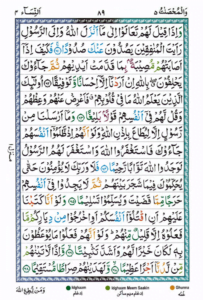 النِّسَآء ٤ ٨٩ وَالْمُحْصَنٰتُ ٥
وَاِذَا قِيْلَ لَهُمْ تَعَالَوْا اِلٰى مَآ اَنْزَلَ اللّٰهُ وَاِلَى الرَّسُوْلِ
رَاَيْتَ الْمُنٰفِقِيْنَ يَصُدُّوْنَ عَنْكَ صُدُوْدًا فَكَيْفَ اِذَآ
اَصَابَتْهُمْ مُّصِيْبَةٌۢ بِمَا قَدَّمَتْ اَيْدِيْهِمْ ثُمَّ جَآءُوْكَ
يَحْلِفُوْنَ بِاللّٰهِ اِنْ اَرَدْنَآ اِلَّآ اِحْسَانًا وَّتَوْفِيْقًا اُولٰٓئِكَ
الَّذِيْنَ يَعْلَمُ اللّٰهُ مَا فِيْ قُلُوْبِهِمْ فَاَعْرِضْ عَنْهُمْ وَعِظْهُمْ
وَقُلْ لَّهُمْ فِيْٓ اَنْفُسِهِمْ قَوْلًاۢ بَلِيْغًا وَمَآ اَرْسَلْنَا مِنْ
رَّسُوْلٍ اِلَّا لِيُطَاعَ بِاِذْنِ اللّٰهِ وَلَوْ اَنَّهُمْ اِذْ ظَّلَمُوْٓا اَنْفُسَهُمْ
جَآءُوْكَ فَاسْتَغْفَرُوا اللّٰهَ وَاسْتَغْفَرَ لَهُمُ الرَّسُوْلُ
لَوَجَدُوا اللّٰهَ تَوَّابًا رَّحِيْمًا فَلَا وَرَبِّكَ لَا يُؤْمِنُوْنَ حَتّٰى
يُحَكِّمُوْكَ فِيْمَا شَجَرَ بَيْنَهُمْ ثُمَّ لَا يَجِدُوْا فِيْٓ اَنْفُسِهِمْ
حَرَجًا مِّمَّا قَضَيْتَ وَيُسَلِّمُوْا تَسْلِيْمًا وَلَوْ اَنَّا كَتَبْنَا
عَلَيْهِمْ اَنِ اقْتُلُوْٓا اَنْفُسَكُمْ اَوِ اخْرُجُوْا مِنْ دِيَارِكُمْ مَّا
فَعَلُوْهُ اِلَّا قَلِيْلٌ مِّنْهُمْ وَلَوْ اَنَّهُمْ فَعَلُوْا مَا يُوْعَظُوْنَ
بِهٖ لَكَانَ خَيْرًا لَّهُمْ وَاَشَدَّ تَثْبِيْتًا وَّاِذًا لَّاٰتَيْنٰهُمْ
مِّنْ لَّدُنَّآ اَجْرًا عَظِيْمًا وَّلَهَدَيْنٰهُمْ صِرَاطًا مُّسْتَقِيْمًا
وَمَنْ يُّطِعِ اللّٰهَ